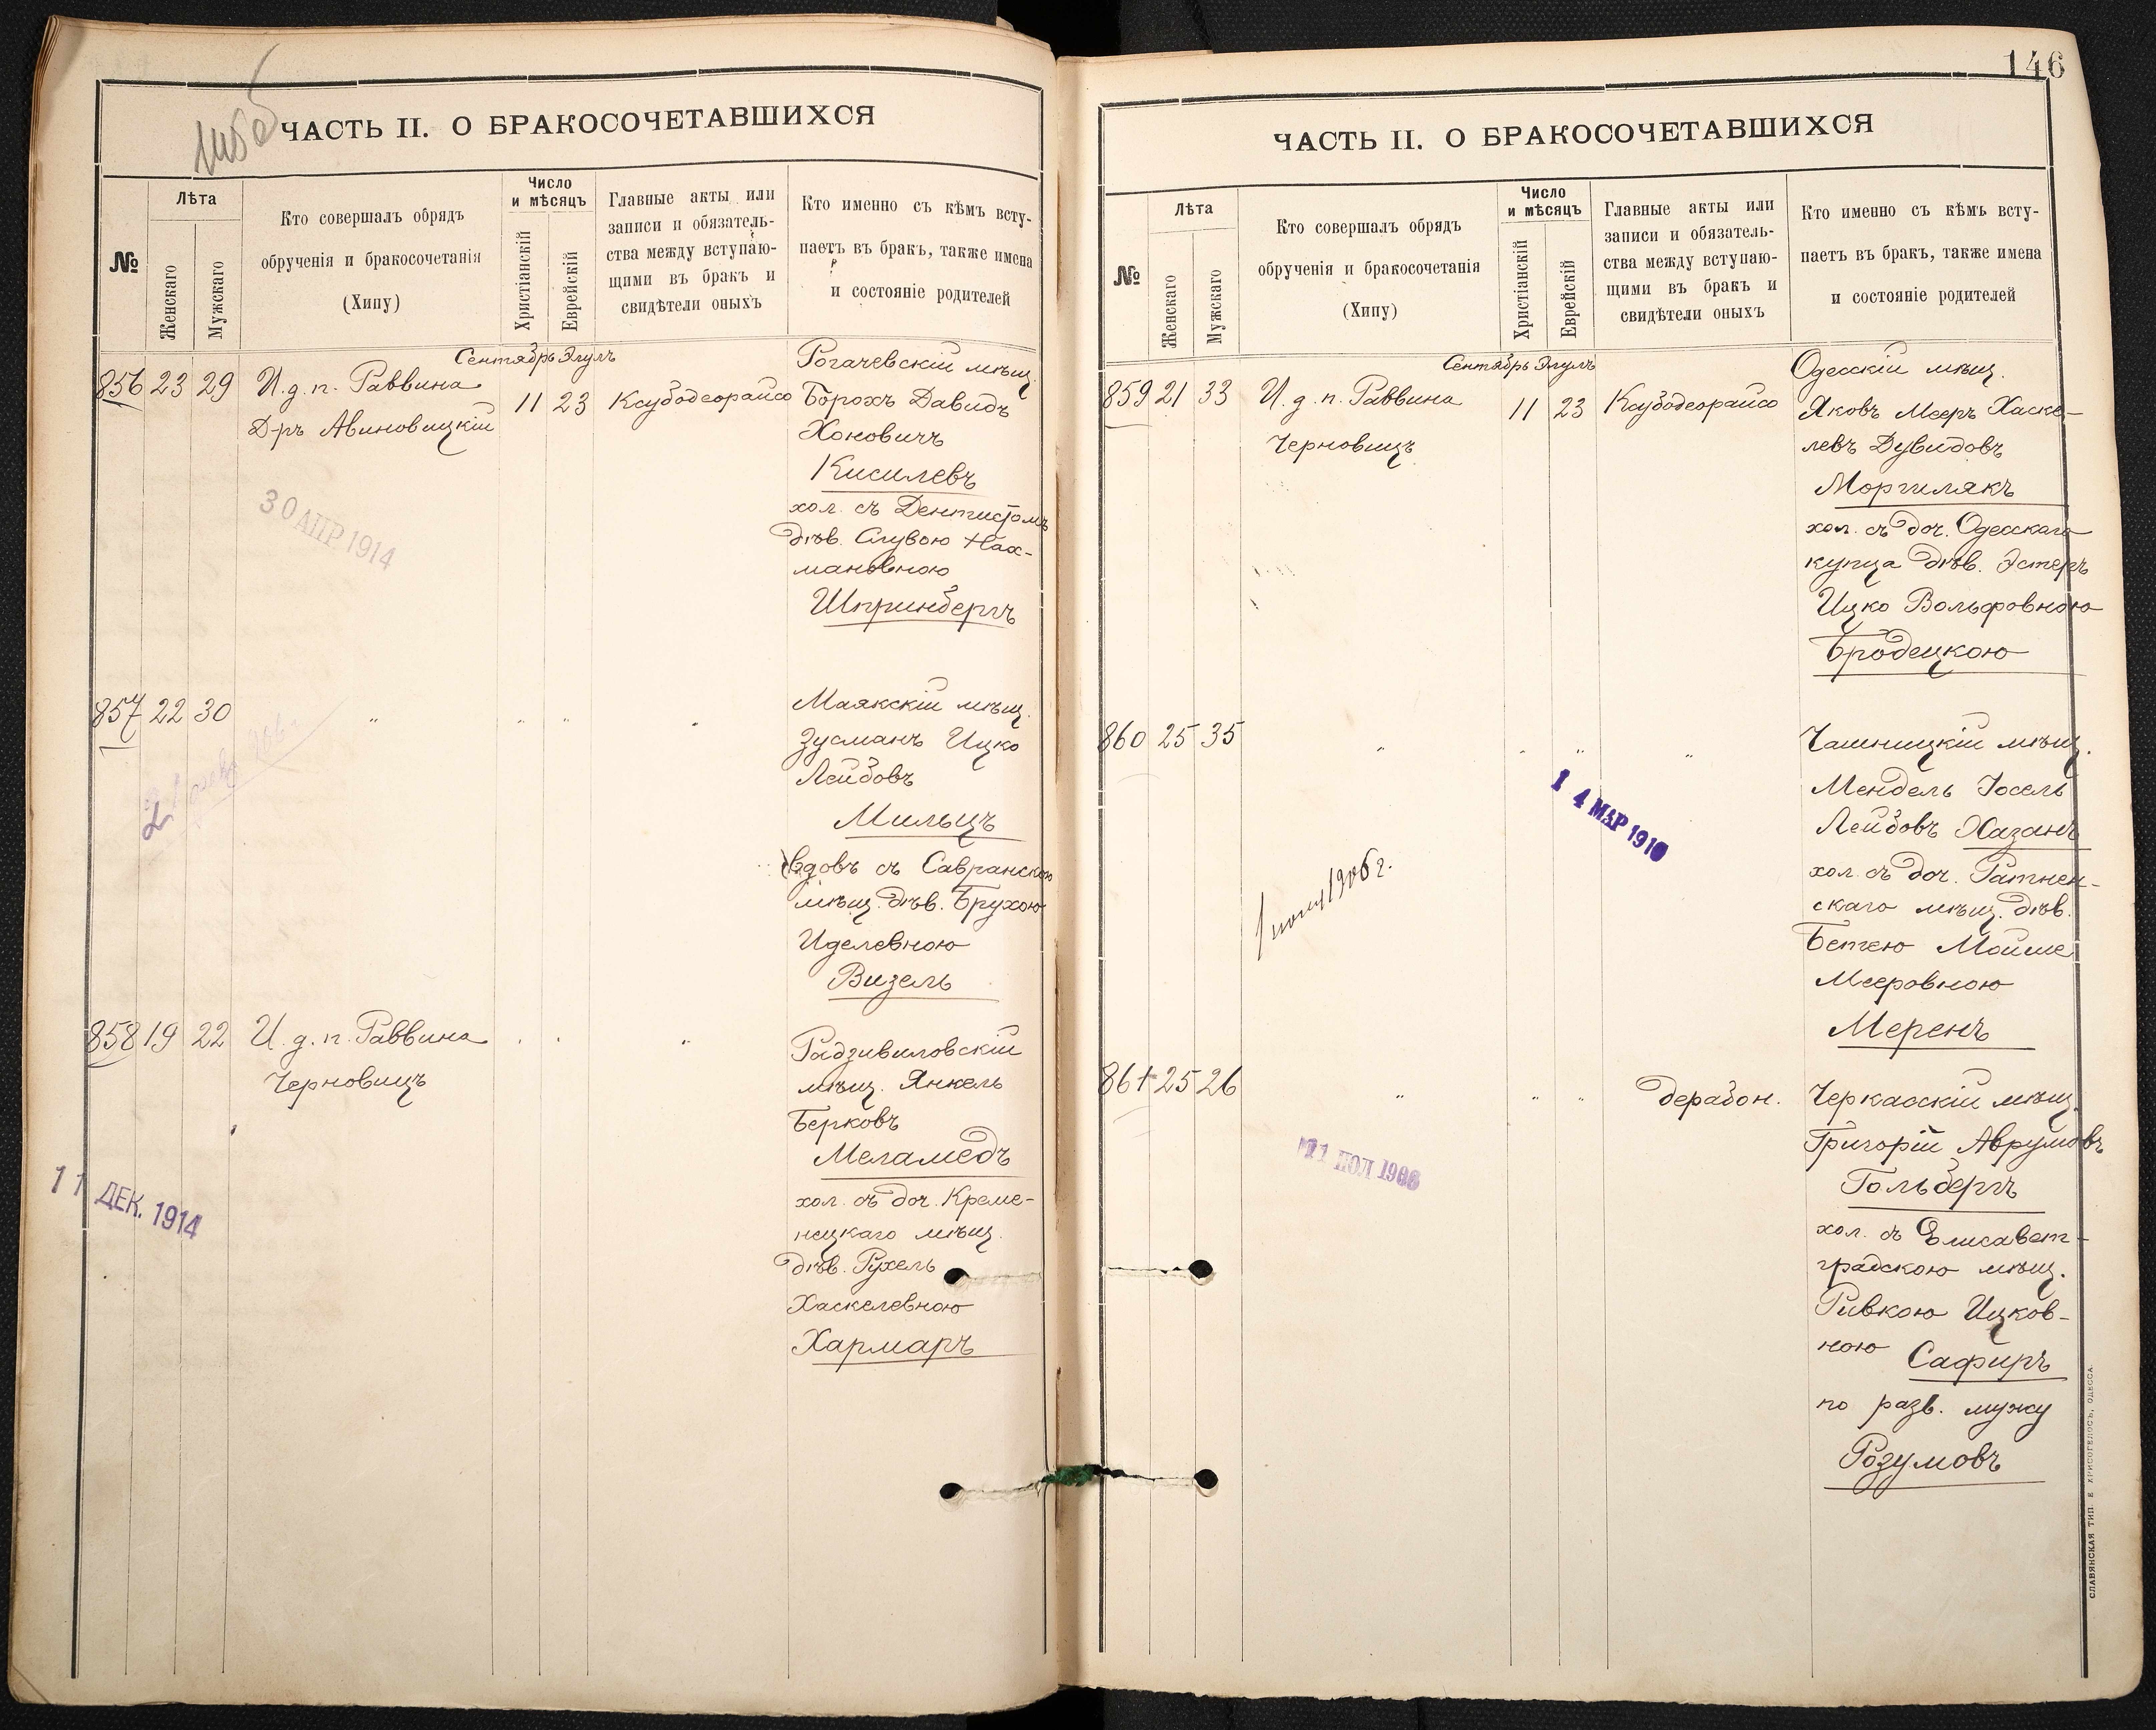 ЧАСТЬ II. О БРАКОСОЧЕТАВШИХСЯ
№
Лѣта
Женскаго
Мужскаго
Кто совершалъ обрядъ
обрученія и бракосочетанія
(Хипу)
Число
и мѣсяцъ
Христіанскій
Еврейскій
Главные акты или
записи и обязатель-
ства между вступаю-
щими въ бракъ и
свидѣтели оныхъ
Кто именно съ кѣмъ всту-
паетъ въ бракъ, также имена
и состояніе родителей
Сентябрь Элулъ
856 23 29 И. д. п. Раввина
Д-ръ Авиновицкій
11 23 Ксубодеорайсо
Рогачевскій мѣщ.
Борохъ Давидъ
Хоновичъ
Кисилевъ
хол. съ Дентистомъ
дѣв. Слувою Нах-
мановною
Шпринбергъ
30 АПР 1914
857 22 30 " " " "
Маякскій мѣщ.
Зусманъ Ицко
Лейбовъ
Мильцъ
вдовъ съ Савранскою
мѣщ. дѣв. Брухою
Иделевною
Визель
858 19 22 И. д. п. Раввина
Черновицъ
Радзивиловскій
мѣщ. Янкель
Берковъ
Меламедъ
хол. съ доч. Креме-
нецкаго мѣщ.
дѣв. Рухель
Хаскелевною
Хармаръ
11 ДЕК. 1914
146
ЧАСТЬ II. О БРАКОСОЧЕТАВШИХСЯ
№
Лѣта
Женскаго
Мужскаго
Кто совершалъ обрядъ
обрученія и бракосочетанія
(Хипу)
Число
и мѣсяцъ
Христіанскій
Еврейскій
Главные акты или
записи и обязатель-
ства между вступаю-
щими въ бракъ и
свидѣтели оныхъ
Кто именно съ кѣмъ всту-
паетъ въ бракъ, также имена
и состояніе родителей
Сентябрь Элулъ
859 21 33 И. д. п. Раввина
Черновицъ
11 23 Ксубодеорайсо
Одесскій мѣщ.
Яковъ Мееръ Хаске-
левъ Дувидовъ
Моргилякъ
хол. съ доч. Одесскаго
купца дѣв. Эстеръ
Ицко Вольфовною
Бродецкою
860 25 35 " " " "
Чашницкій мѣщ.
Мендель Іосель
Лейбовъ Хазанъ
хол. съ доч. Ратнен-
скаго мѣщ. дѣв.
Бетею Мойше
Мееровною
Меренъ
14 МАР 1910
1906 г.
861 25 26 " " " дерабон.
Черкасскій мѣщ.
Григорій Аврумовъ
Гольбергъ
хол. съ Елисавет-
градскою мѣщ.
Ривкою Ицков-
ною Сафиръ
по разв. мужу
Розумовъ
СЛАВЯНСКАЯ ТИП. Е. ХРИСОГЕЛОСЪ, ОДЕССА.